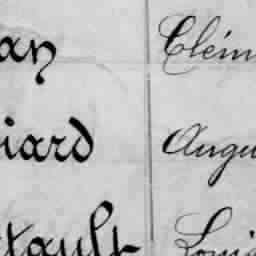 an Clém
iard Augu
tault Loui